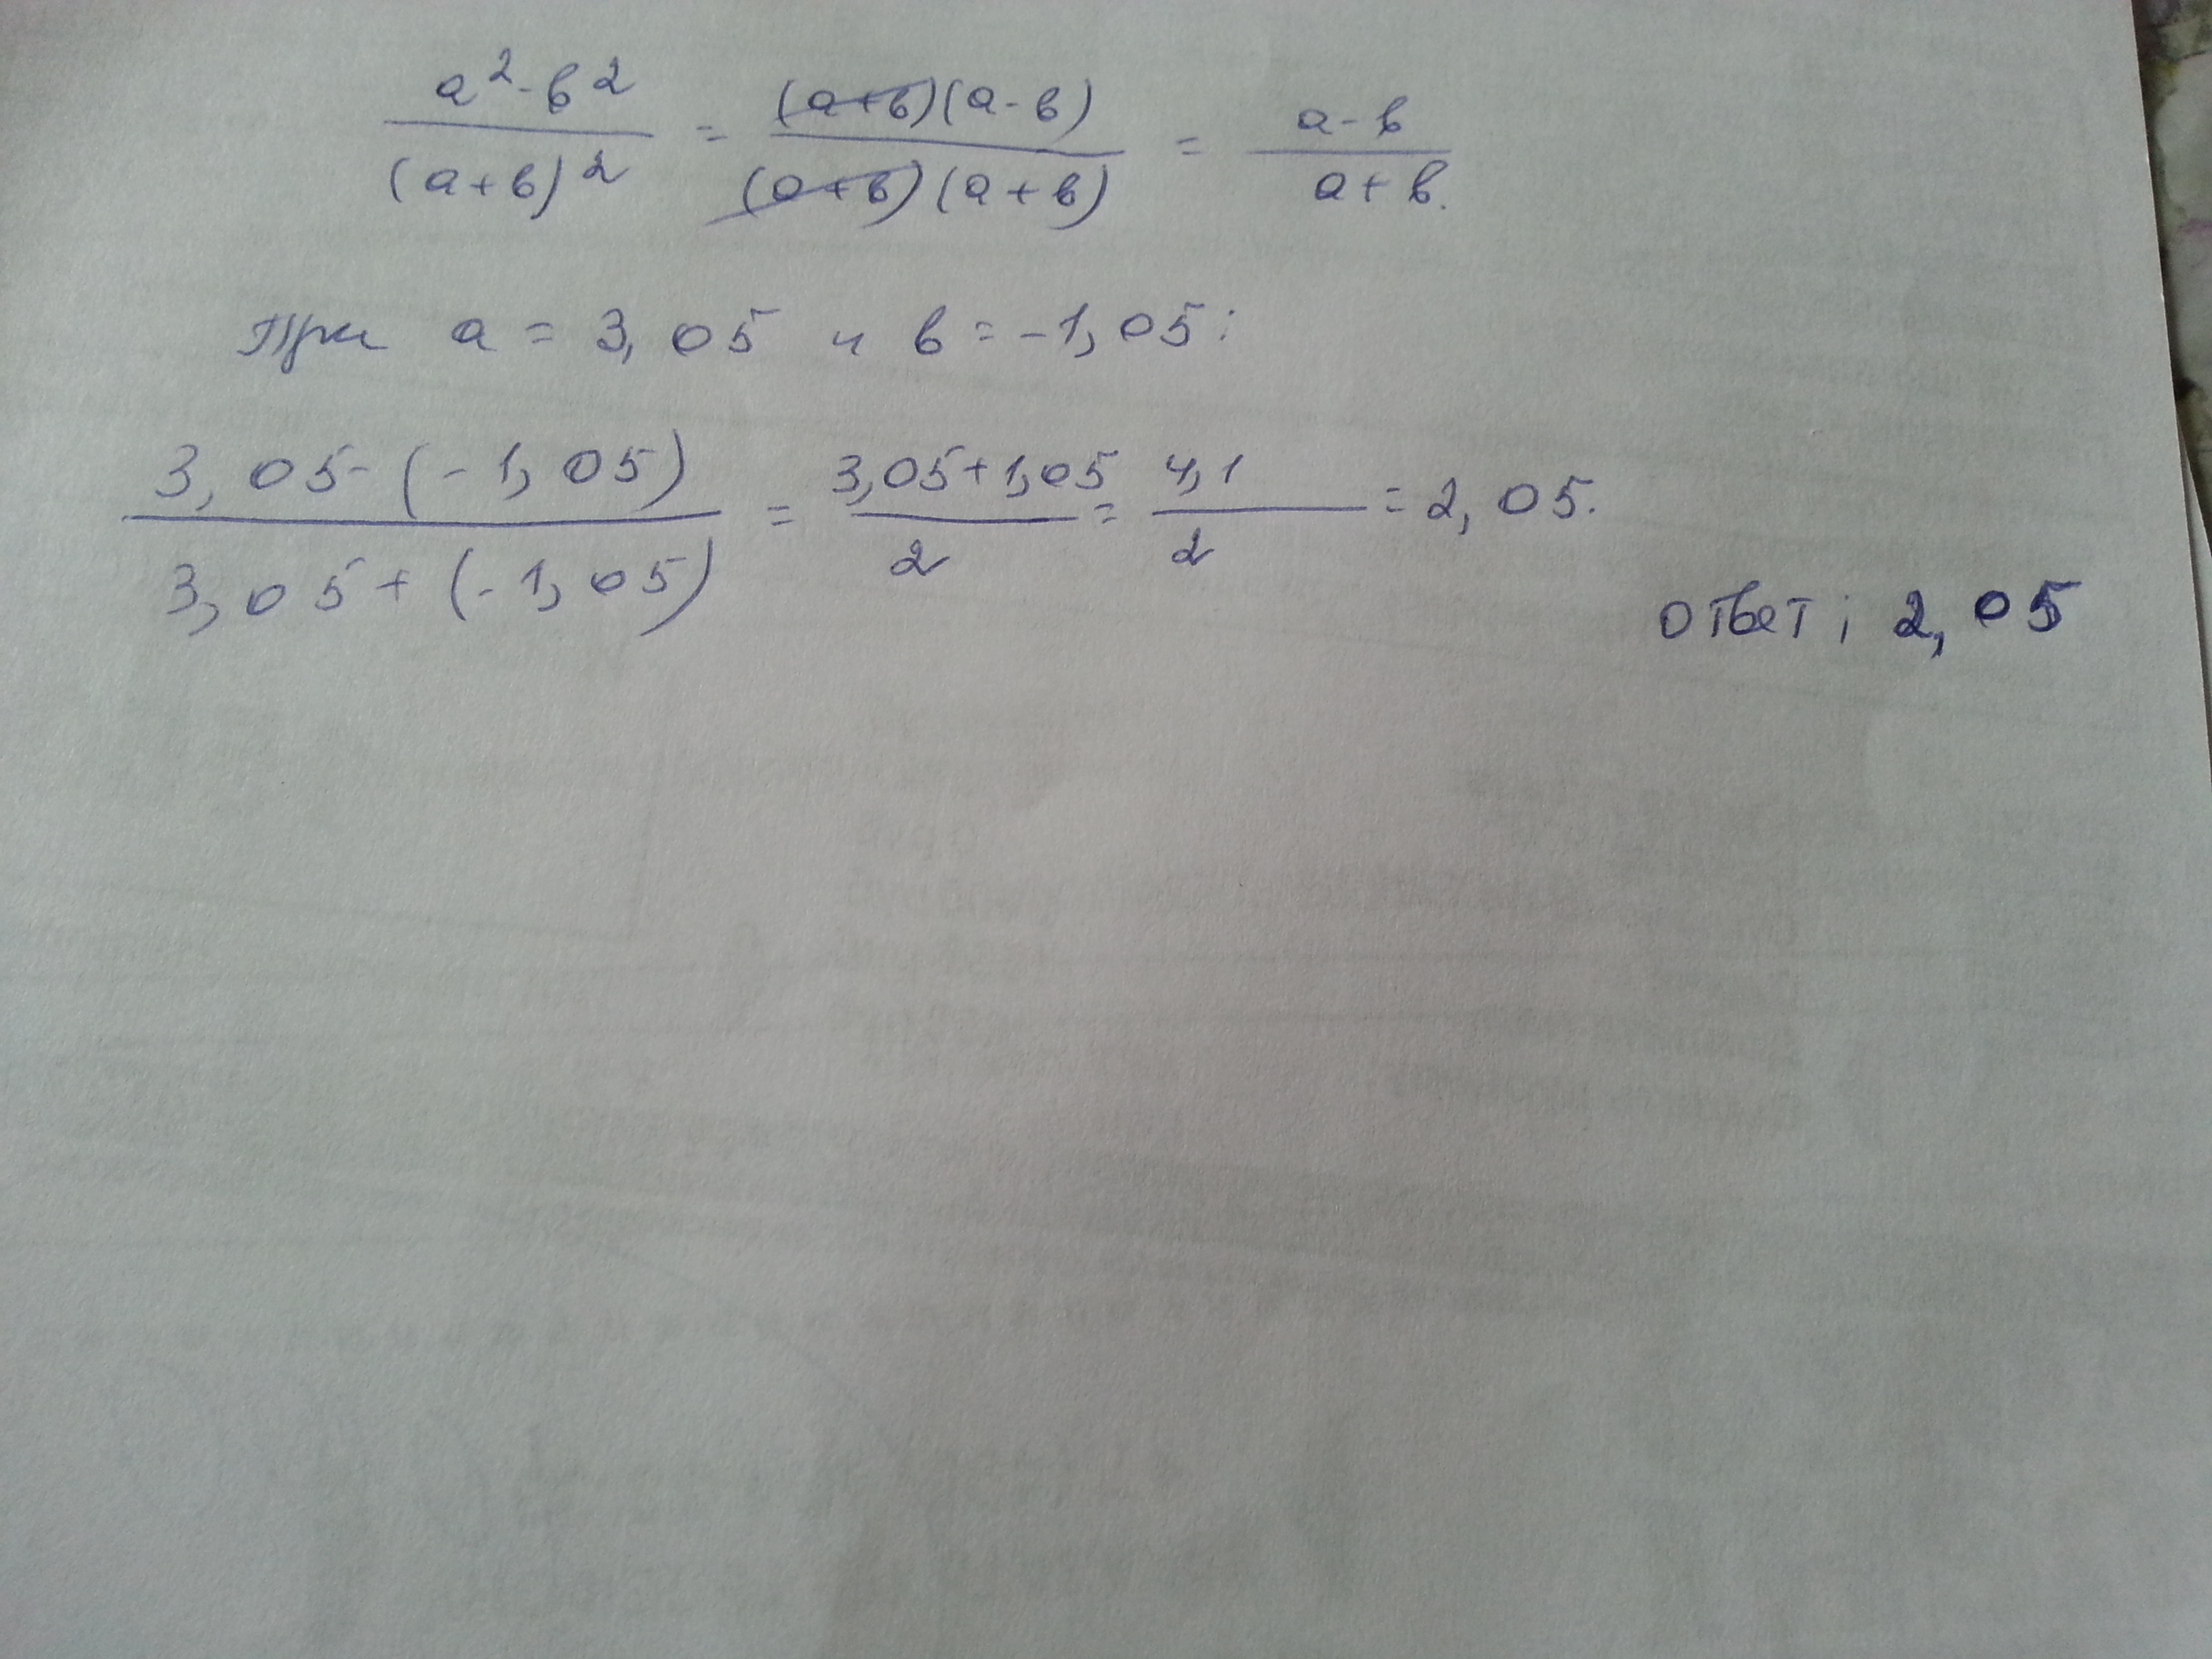 a² - в² / (a+в)² = (a+в)(a-в) / (a+в)(a+в) = a-в / a+в.
При a = 3,05 и в = -1,05:
3,05-(-1,05) / 3,05+(-1,05) = 3,05+1,05 / 2 = 4,1 / 2 = 2,05.
Ответ: 2,05